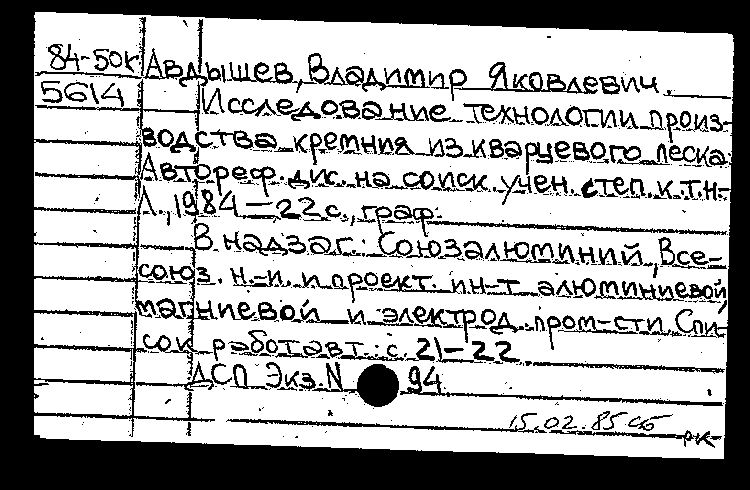 84-50к Авдышев, Владимир Яковлевич.
5614 Исследование технологии произ-
водства кремния из кварцевого песка
Автореф. дис. на соиск. учен. степ. к.т.н-
Л., 1984-22с., граф.
В надзаг.: Союзалюминий, Все-
союз. н.-и. и проект. ин-т алюминиевой,
магниевой и электрод. пром-сти. Спи-
сок работ авт.: с. 21-22
ДСП Экз. N 94
15.02.85 сб
рк-